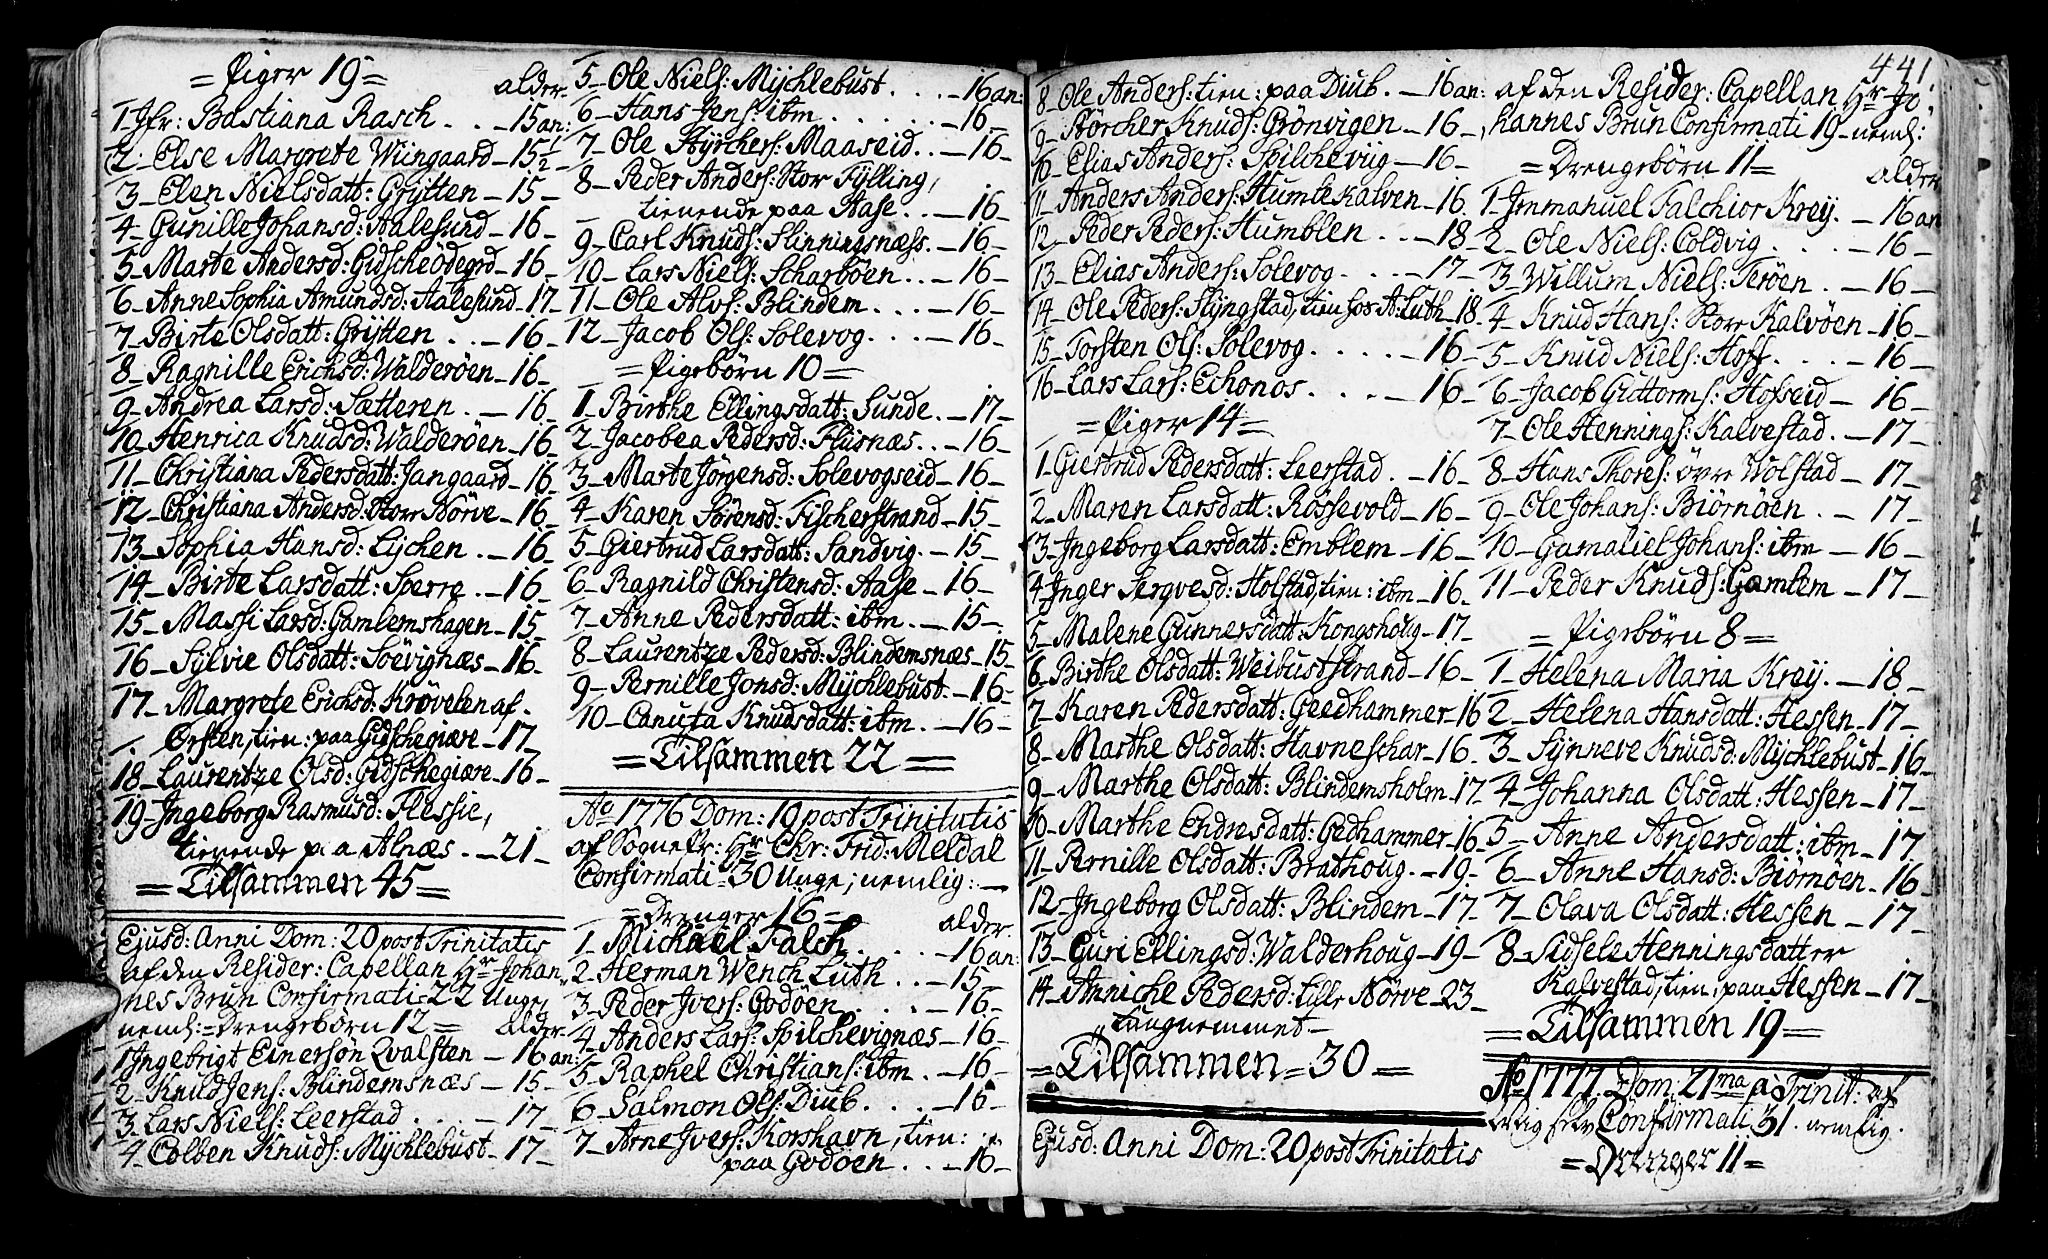 = Piger 19 =
alder.
1_ Jfr: Bastiana Rasch . . _ 15 an:
2_ Else Margrete Wiingaard _ 15½
3_ Elen Nielsdatt: Grytten _ 15 _
4_ Gunille Johansd: Aalesund _ 16 _
5_ Marte Andersd: Gidscheödegrd _ 16 _
6_ Anne Sophia Amundsd: Aalesund _ 17 _
7_ Birte Olsdatt: Grytten . . _ 16 _
8_ Ragnille Erichsd: Walderöen _ 16 _
9_ Andrea Larsd: Sætteren . _ 16 _
10_ Henrica Knudsd: Walderöen _ 16 _
11_ Christiana Pedersdatt: Jangaard _ 16 _
12_ Christiana Andersd: Store Nörve _ 16 _
13_ Sophia Hansd: Lychen . _ 16 _
14_ Birte Larsdatt: Sperre . _ 16 _
15_ Massi Larsd: Gamlemshagen _ 15 _
16_ Sylvie Olsdatt: Soevignæs _ 16 _
17_ Margrete Erichsd: Krövelen af
Örsten, tien: paa Gidschegiære _ 17 _
18_ Laurentze Olsd: Gidschegiære _ 16 _
19_ Ingeborg Rasmusd: Flessie,
tienende paa Alnæs . _ 21 _
= Tilsammen 45 =
Ejusd: Anni Dom: 20 post Trinitatis
af den Resider: Capellan Hr Johan,,
nes Brun Confirmati 22 Unge,
neml: = Drengebörn 12 = alder.
1 Ingebrigt Einersön Qvalsten _ 16 an:
2_ Knud Jens: Blindemsnæs _ 15 _
3_ Lars Niels: Leerstad . . . _ 17 _
4_ Colben Knuds: Mychlebust _ 17 _
5_ Ole Niels: Mychlebust . . . _ 16 an:
6_ Hans Jens: ibm . . . . . . _ 16 _
7_ Ole Styrchers: Maaseid . . _ 16 _
8_ Peder Anders: Stor Fylling,
tienende paa Aase . . _ 16 _
9_ Carl Knuds: Slinningsnæss _ 16 _
10_ Lars Niels: Scharböen . . _ 16 _
11_ Ole Alvs: Blindem . . . _ 16 _
12_ Jacob Ols: Solevog . . . _ 16 _
= Pigebörn 10 =
1_ Birthe Ellingsdatt: Sunde . _ 17 _
2_ Jacobea Pedersd: Flisnæs . . _ 16 _
3_ Marte Jörgensd: Solevogseid _ 16 _
4_ Karen Sörensd: Fischerstrand _ 15 _
5_ Giertrud Larsdatt: Sandvig. _ 15 _
6_ Ragnild Christensd: Aase _ 16 _
7_ Anne Pedersdatt: ibm . _ 15 _
8_ Laurentze Pedersd: Blindemsnæs _ 15 _
9_ Pernille Jonsd: Mychlebust. _ 16 _
10_ Canuta Knudsdatt: ibm . _ 16 _
= Tilsammen 22 =
Ao 1776 Dom: 19 post Trinitatis
af SognePr: Hr Chr: Frid: Meldal
Confirmati = 30 Unge; nemlig: _
= Drenger 16 =
alder.
1_ Michäel Falch . . . . _ 16 an:
2_ Herman Wench Luth . . _ 15 _
3_ Peder Ivers: Godöen . . . _ 16 _
4_ Anders Lars: Spilchevignæs _ 16 _
5_ Raphel Christians: ibm . _ 16 _
6_ Salmon Ols: Diub . . . _ 16 _
7_ Arne Ivers: Korshavn, tien:
paa Godöen . . _ 16 _
8_ Ole Anders: tien: paa Diub. _ 16 an:
9_ Störcher Knuds: Grönvigen _ 16 _
10_ Elias Anders: Spilcheviig _ 16 _
11_ Anders Anders: Humlekalven _ 16
12_ Peder Peders: Humblen . . _ 18 _
13_ Elias Anders: Solevog . . . _ 17 _
14_ Ole Peders: Slyngstad, tien hos A: Luth _ 18
15_ Torsten Ols: Solevog . . . . _ 16 _
16_ Lars Lars: Echonos . . . _ 16 _
= Piger 14 =
1_ Giertrud Pedersdatt: Leerstad . _ 16 _
2_ Maren Larsdatt: Rössevold _ 16 _
3_ Ingeborg Larsdatt: Emblem _ 16 _
4_ Inger Sergvesd: Holstad, tien: ibm _ 16 _
5_ Malene Gunnersdatt: Kongshoug _ 17 _
6_ Birthe Olsdatt: Weibuststrand _ 16 _
7_ Karen Pedersdatt: Geedhammer _ 16
8_ Marthe Olsdatt: Havneschar _ 16
9_ Marthe Olsdatt: Blindemsholm _ 17
10_ Marthe Endresdatt: Gedhammer _ 16
11_ Pernille Olsdatt: Brathoug . _ 19 _
12_ Ingeborg Olsdatt: Blindem _ 17 _
13_ Guri Ellingsd: Walderhoug _ 19 _
14_ Anniche Pedersd: Lille Nörve _ 23 _
,, Tungnemmet _
= Tilsammen = 30 =
Ejusd: Anni Dom: 20 post Trinitatis
441
af den Resider: Capellan Hr Jo,,
hannes Brun Confirmati 19 _ neml:
= Drengebörn 11 =
alder
1_ Immanuel Falchior Krey. _ 16 an
2_ Ole Niels: Coldvig . . . . _ 16 _
3_ Willum Niels: Teröen . _ 16 _
4_ Knud Hans: Store Kalvöen _ 16 _
5_ Knud Niels: Hoff . . . . _ 16 _
6_ Jacob Guttorms: Hofseid _ 16 _
7_ Ole Hennings: Kalvestad . _ 17 _
8_ Hans Thores: övre Wolstad _ 17 _
9_ Ole Johans: Biörnöen . _ 17 _
10_ Gamaliel Johans: ibm _ 16 _
11_ Peder Knuds: Gamlem _ 17 _
= Pigebörn 8 =
1_ Helena Maria Krey. _ 18 _
2_ Helena Hansdatt: Hessen _ 17 _
3_ Synneve Knudsd: Mychlebust _ 16 _
4_ Johanna Olsdatt: Hessen _ 17 _
5_ Anne Andersdatt: ibm _ 17
6_ Anne Hansd: Biörnöen _ 16 _
7_ Olava Olsdatt: Hessen _ 17 _
8_ Sidsele Henningsdatter
Kalvestad, tien, paa Hessen _ 17 _
= Tilsammen 19 =
Ao 1777. Dom: 21ma p Trinit: af
selv Confirmati 31. nemlig.
= Drenger 11 =